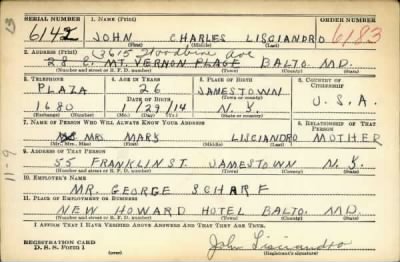 SERIAL NUMBER 1. NAME (Print)
6142 JOHN CHARLES LISCIANDRO 6183
(First) (Middle) (Last)
3615 Woodbine Ave
2. ADDRESS (Print)
28 E. MT. VERNON PLACE BALTO. MD.
(Number and street or R. F. D. number) (Town) (County) (State)
3. TELEPHONE 4. AGE IN YEARS 5. PLACE OF BIRTH 6. COUNTRY OF CITIZENSHIP
PLAZA 26 JAMESTOWN
DATE OF BIRTH (Town or county)
1680 1/29/14 N.Y. U.S.A.
(Exchange) (Number) (Mo.) (Day) (Yr.) (State or country)
7. NAME OF PERSON WHO WILL ALWAYS KNOW YOUR ADDRESS 8. RELATIONSHIP OF THAT PERSON
MRS. MARY LISCIANDRO MOTHER
(Mr., Mrs., Miss) (First) (Middle) (Last)
9. ADDRESS OF THAT PERSON
55 FRANKLIN ST. JAMESTOWN N.Y.
(Number and street or R. F. D. number) (Town) (County) (State)
10. EMPLOYER'S NAME
MR. GEORGE SCHARF
11. PLACE OF EMPLOYMENT OR BUSINESS
NEW HOWARD HOTEL BALTO. MD.
(Number and street or R. F. D. number) (Town) (County) (State)
I AFFIRM THAT I HAVE VERIFIED ABOVE ANSWERS AND THAT THEY ARE TRUE.
REGISTRATION CARD
D. S. S. Form 1 John Lisciandro
(Registrant's signature)
11-9